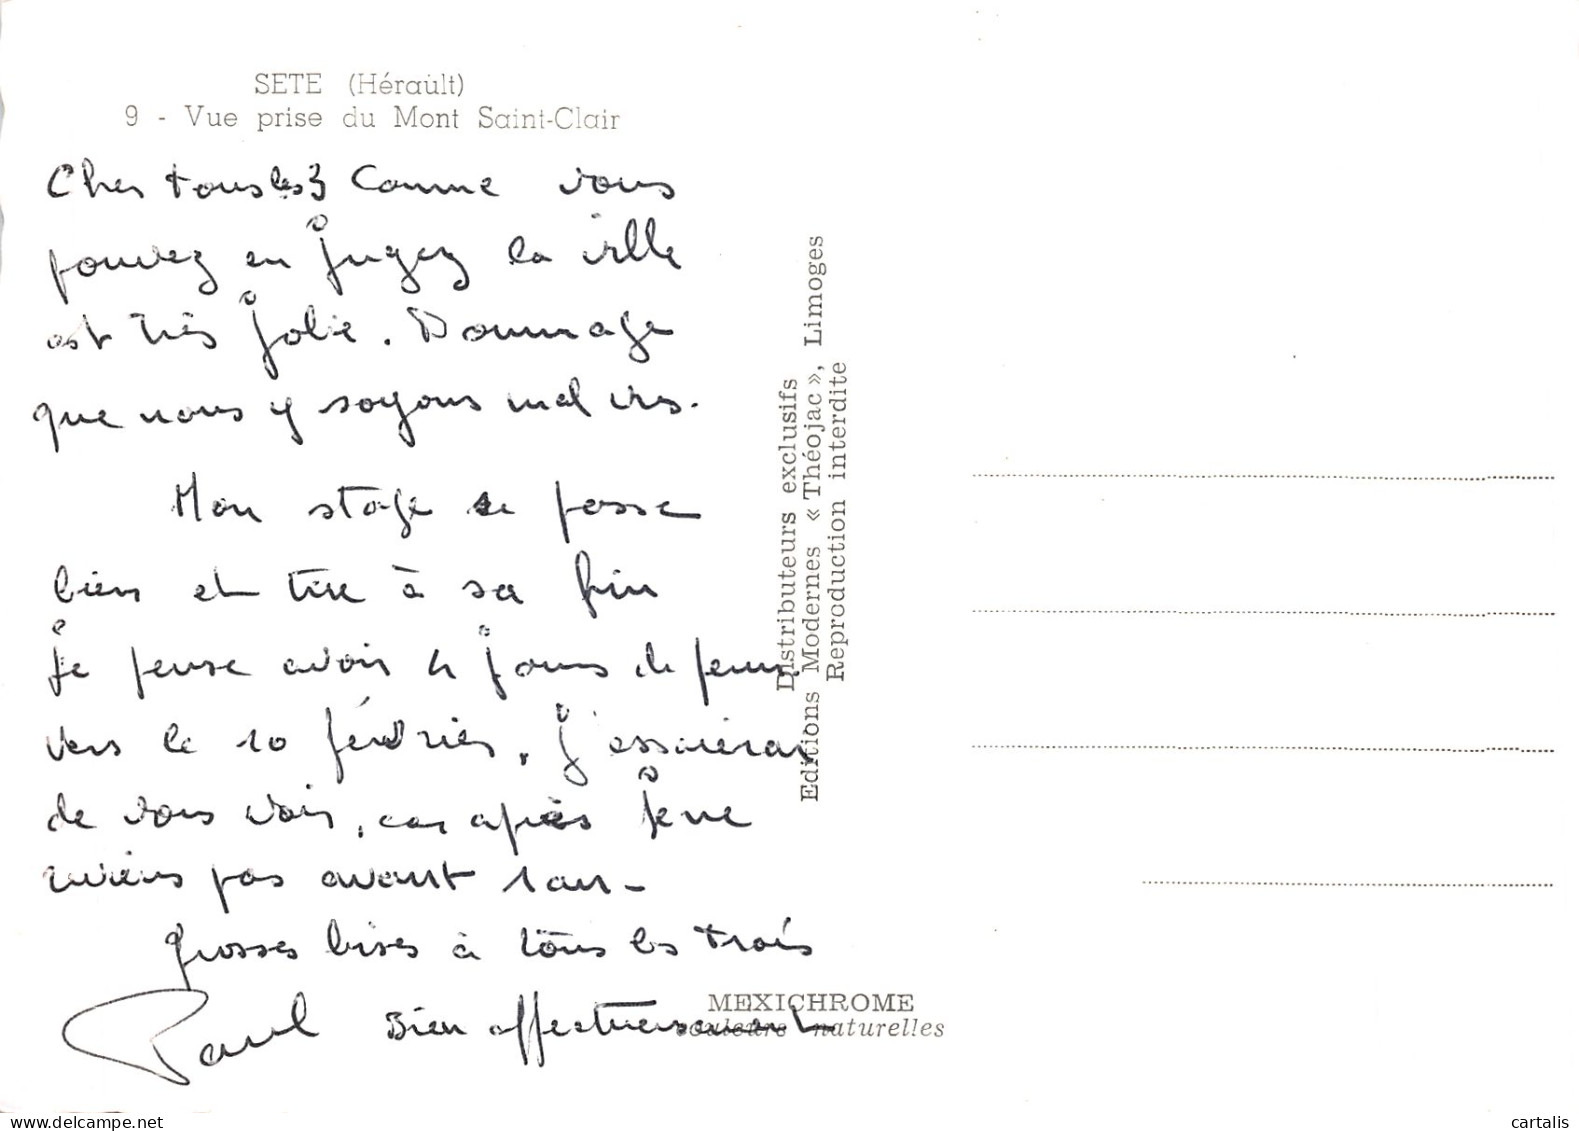 SETE (Hérault)
9 - Vue prise du Mont Saint-Clair
Cher tous les 3 Comme vous
pouvez en jugez la ville
est très jolie. Dommage
que nous y soyons mal vus.
Mon stage se passe
bien et tire à sa fin
je pense avoir 4 jours de perm
vers le 10 février. J'essaierai
de vous voir, car après je ne
reviens pas avant 1 an -
Grosses bises à tous les trois
Paul Bien affectueusement
Distributeurs exclusifs
Editions Modernes « Théojac », Limoges
Reproduction interdite
MEXICHROME
couleurs naturelles
delcampe.net
cartalis